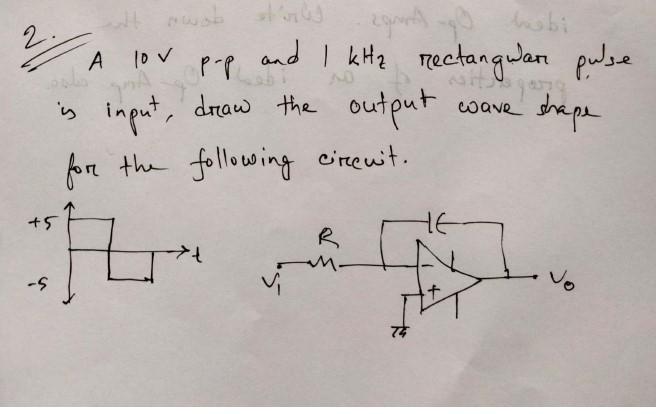 2.
A 10 V p-p and 1 kHz rectangular pulse
is input, draw the output wave shape
for the following circuit.
+5
-5
t
R
C
Vi
-
+
Vo